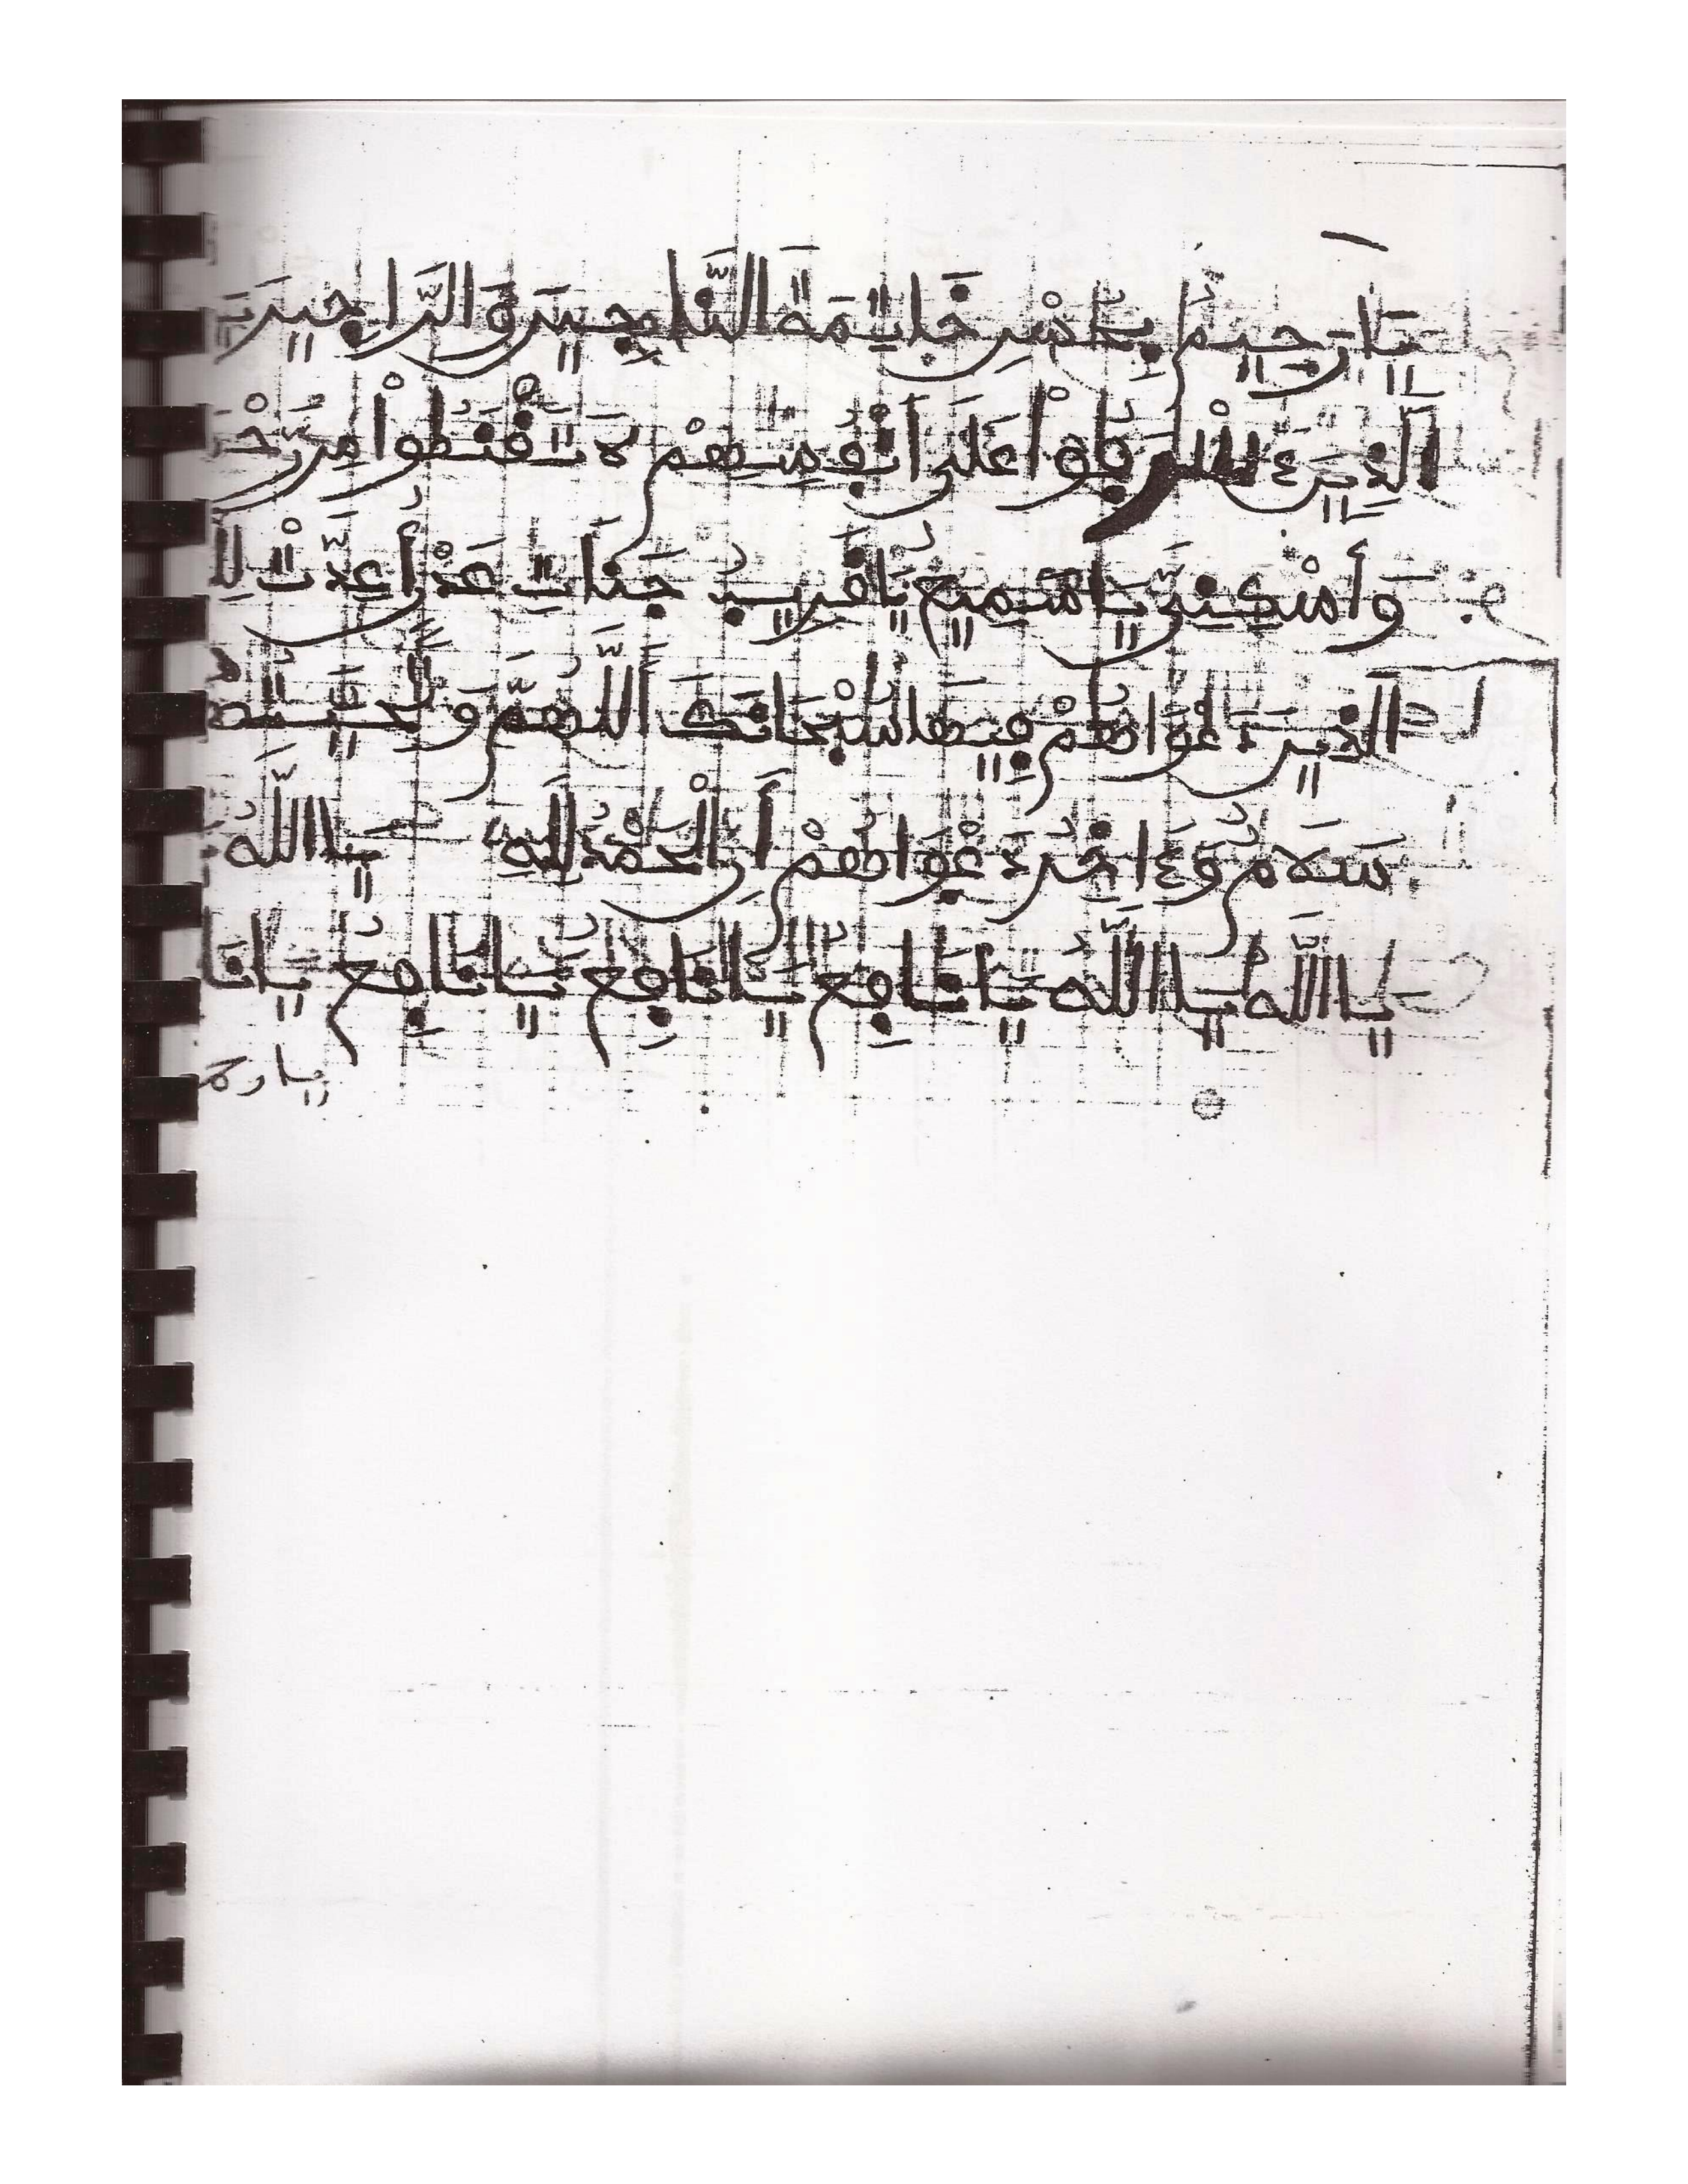 يَا رَحِيمُ بِحُسْنِ خَاتِمَةِ النَّاجِينَ وَالرَّاجِينَ
الَّذِينَ ءَاسْرَفُواْ عَلَى أَنْفُسِهِمْ لَا تَقْنَطُواْ مِن رَّحْ
وَأَسْكِنِّي يَا سَمِيعُ يَا قَرِيبُ جَنَّاتِ عَدْنٍ أُعِدَّتْ لِلْ
الذِينَ دَعْوَاهُمْ فِيهَا سُبْحَانَكَ اللَّهُمَّ وَتَحِيَّتُهُمْ
سَلَامٌ وَءَاخِرُ دَعْوَاهُمْ أَنِ الْحَمْدُ لِلَّهِ يَا اللَّهُ
يَا اللَّهُ يَا اللَّهُ يَا نَافِعُ يَا نَافِعُ يَا نَافِعُ يَا نَا